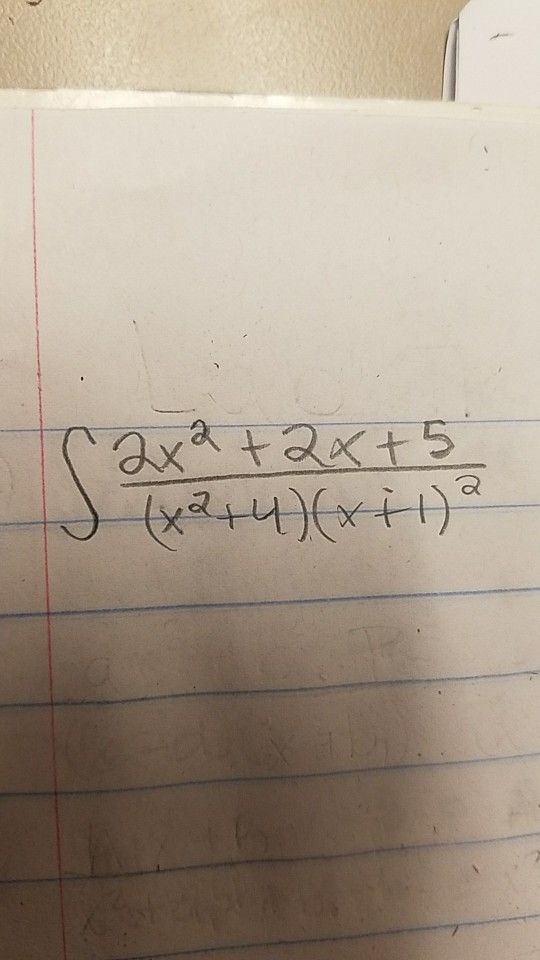 ∫ 2x² + 2x + 5
(x²+4)(x+1)²